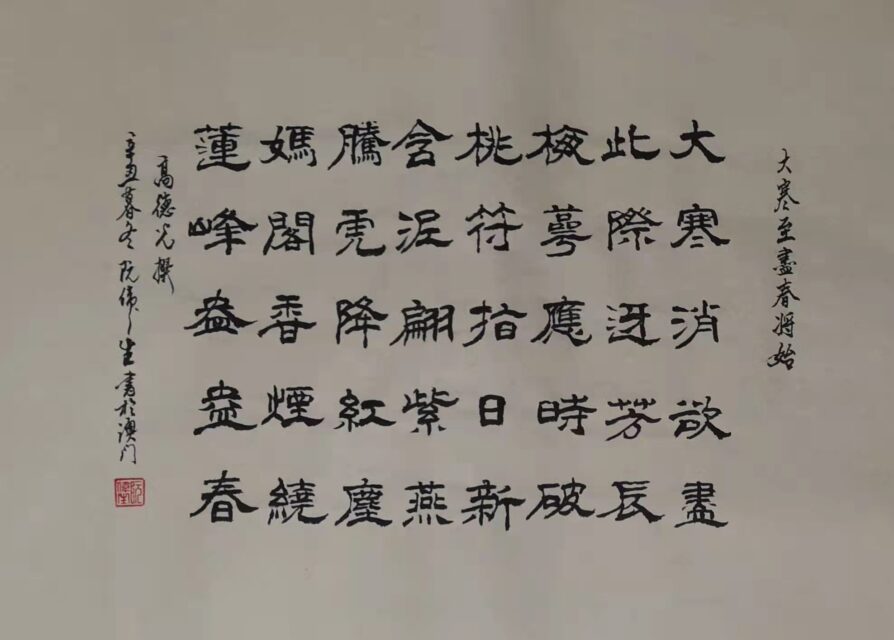 大寒至盡春將始
大寒消欲盡
此際迓芳辰
梅萼應時破
桃符指日新
含泥翩紫燕
騰虎降紅塵
媽閣香煙繞
蓮峰盎盎春
高德光撰
辛丑暮冬阮偉生書於澳門